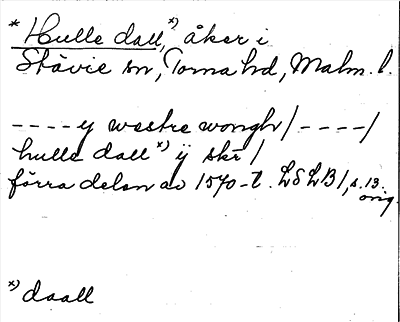 * Hulle dall,*) åker i
Stävie sn, Torna hd, Malm. l.
---- y westre wongh / ---- /
hulle dall *) ÿ skr /
förra delen av 1570-t. LSLB 1, s. 13.
orig.
*) daall